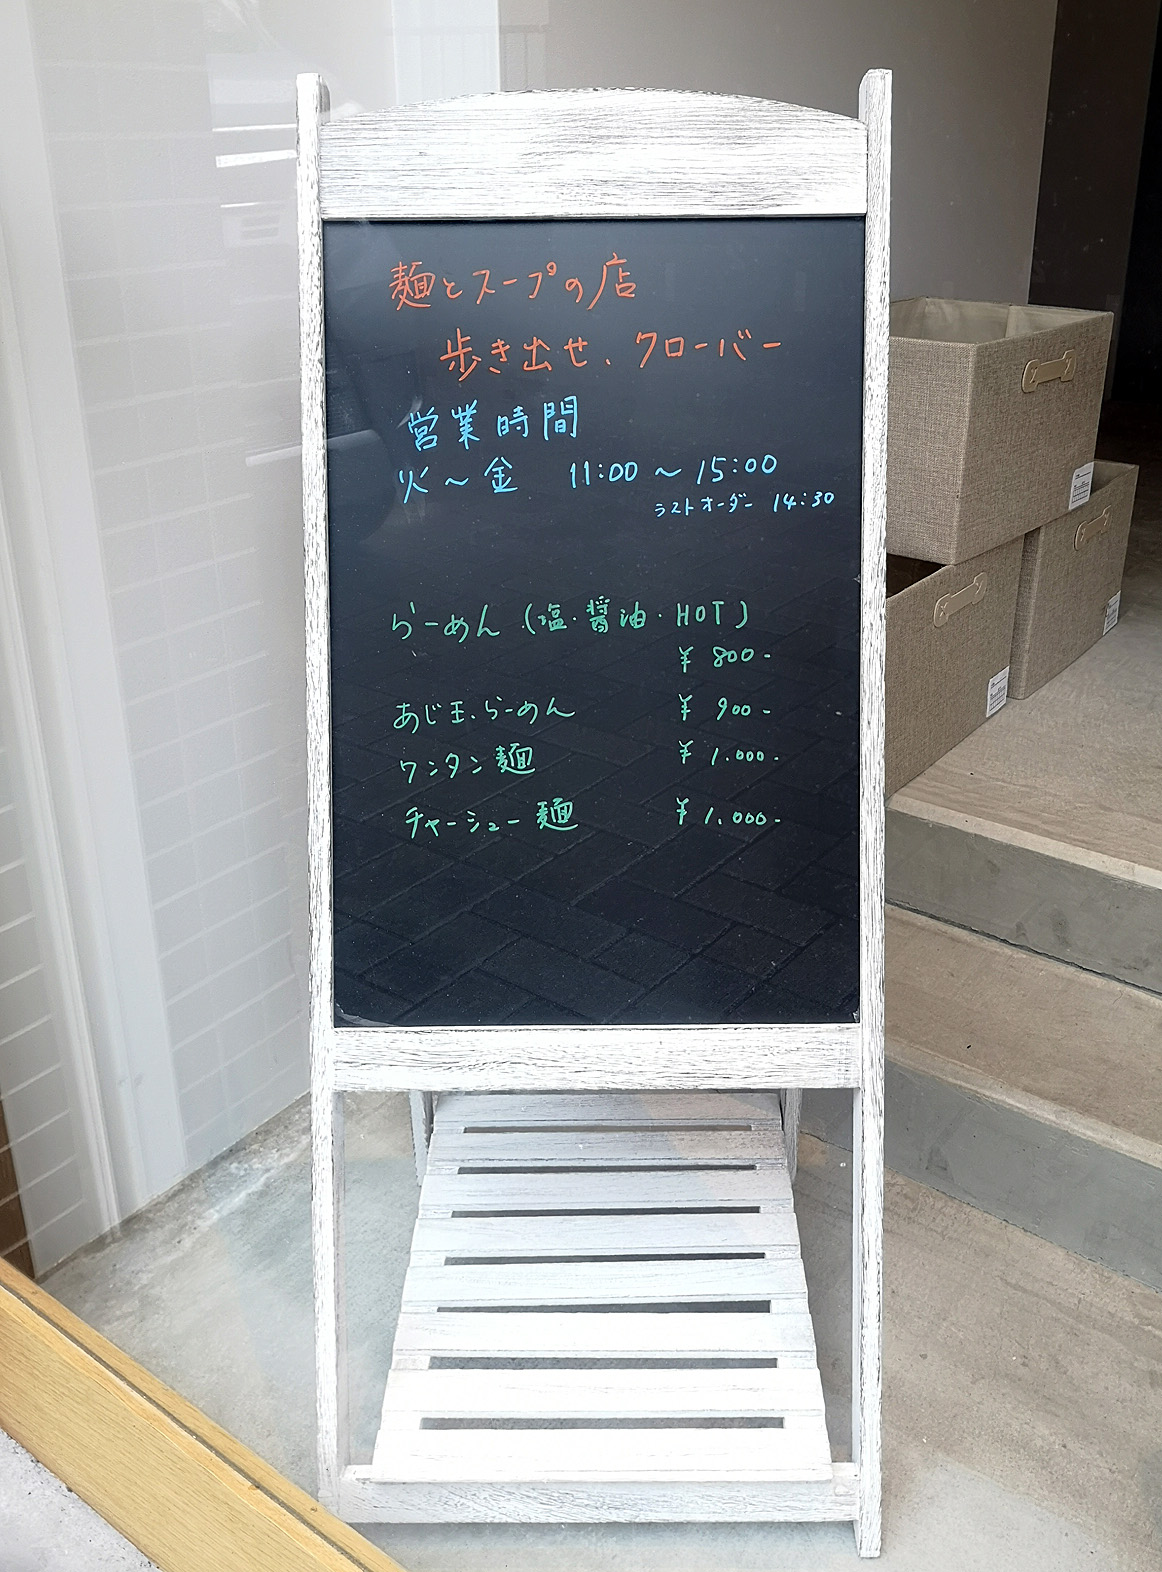 麺とスープの店
歩き出せ、クローバー
営業時間
火〜金 11:00〜15:00
ラストオーダー 14:30
らーめん(塩・醤油・HOT)
¥800-
あじ玉らーめん ¥900-
ワンタン麺 ¥1.000-
チャーシュー麺 ¥1.000-